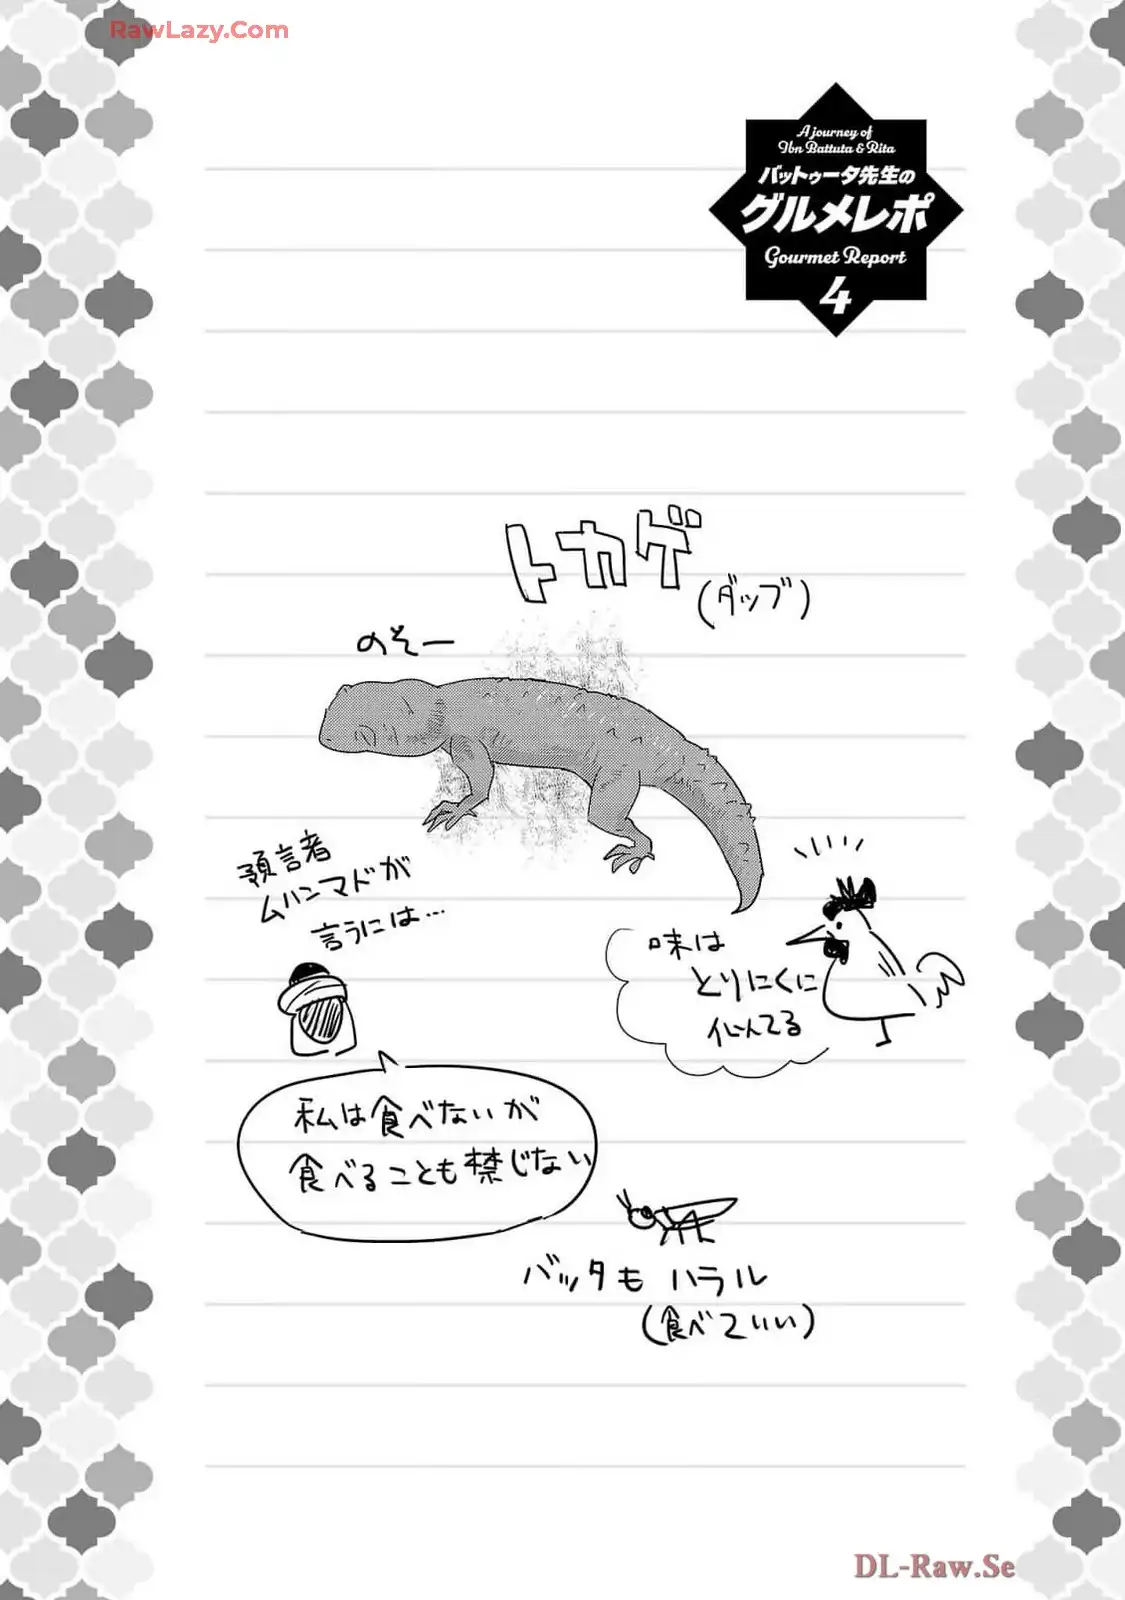 RawLazy.Com
A journey of
Ibn Battuta & Rita
バットゥータ先生の
グルメレポ
Gourmet Report
4
トカゲ
(ダッブ)
のそー
預言者
ムハンマドが
言うには…
味は
とりにくに
似てる
私は食べないが
食べることも禁じない
バッタも ハラル
(食べていい)
DL-Raw.Se